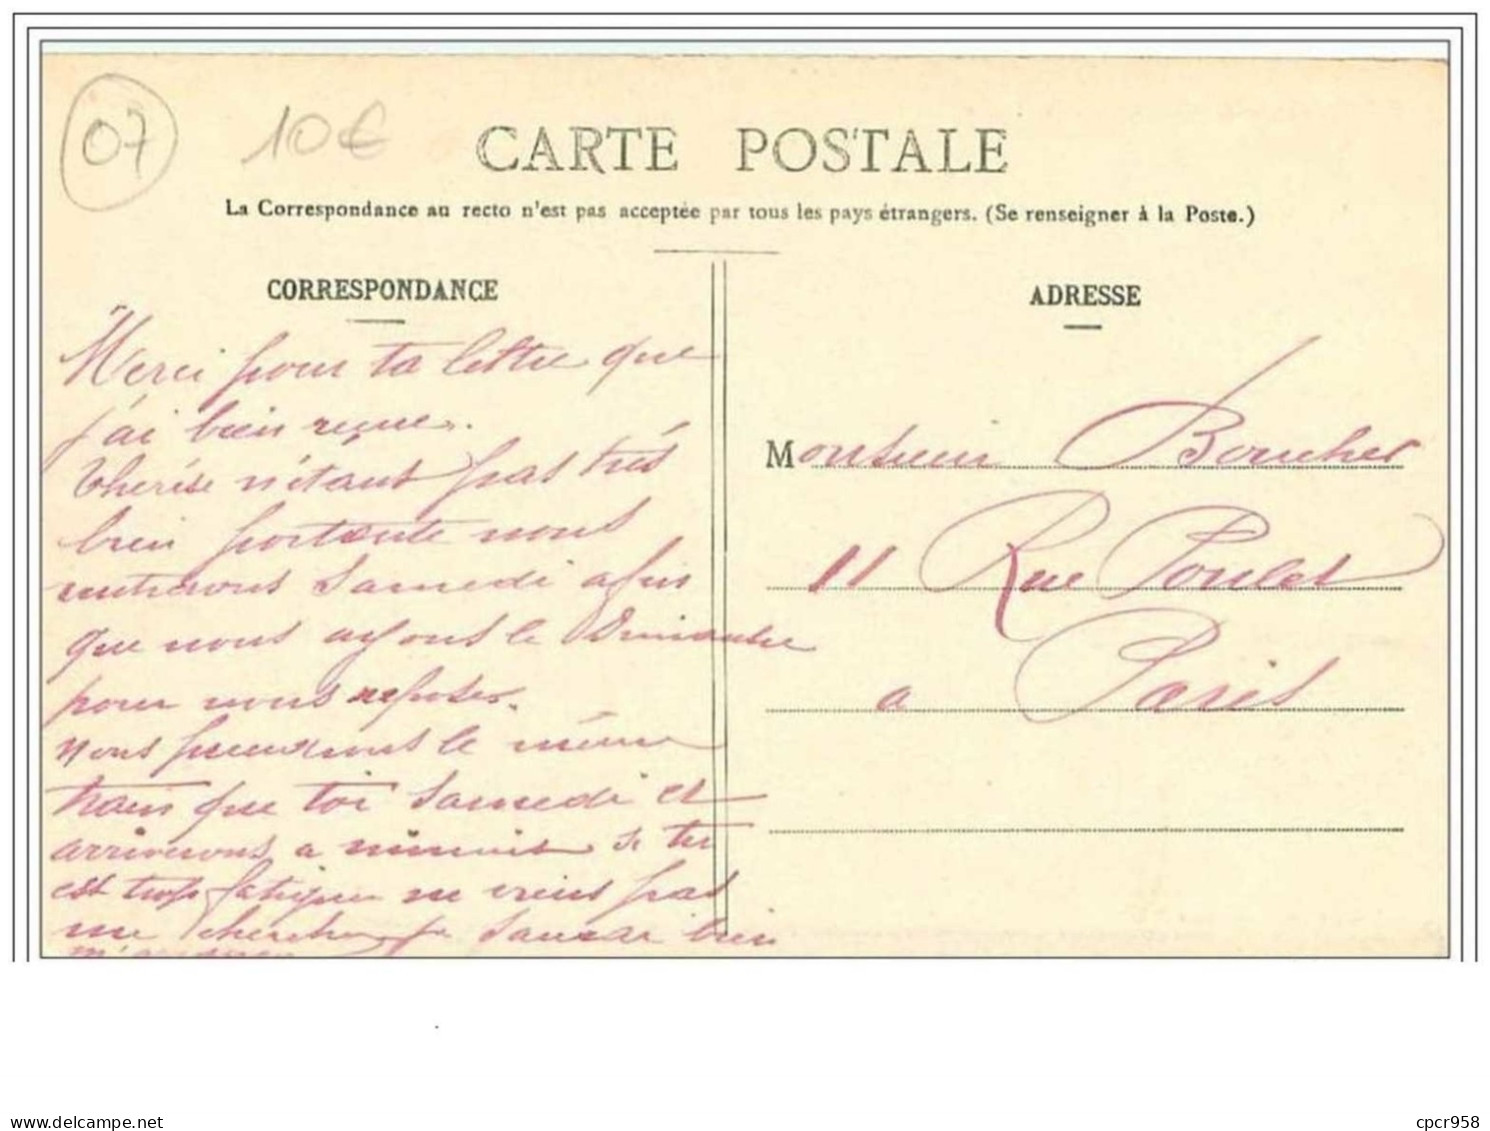 07 10€
CARTE POSTALE
La Correspondance au recto n'est pas acceptée par tous les pays étrangers. (Se renseigner à la Poste.)
CORRESPONDANCE
Merci pour ta lettre que
j'ai bien reçue.
Thérèse n'étant pas très
bien portante nous
rentrerons Samedi afin
que nous ayons le Dimanche
pour nous reposer.
Nous prendrons le même
train que toi Samedi et
arriverons a minuit si tu
est trop fatigué ne viens pas
me chercher je saurai bien
m'arranger
ADRESSE
Monsieur Boucher
11 Rue Poulet
a Paris
delcampe.net
cpcr958